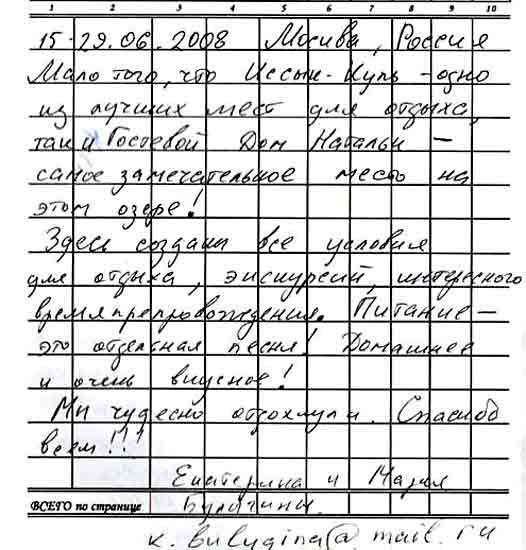 1 2 3 4 5 6 7 8 9 10
15-29.06.2008 Москва, Россия
Мало того, что Иссык-Куль - одно
из лучших мест для отдыха,
так и Гостевой Дом Натальи —
самое замечательное место на
этом озере!
Здесь созданы все условия
для отдыха, экскурсий, интересного
времяпрепровождения. Питание —
это отдельная песня! Домашнее
и очень вкусное!
Мы чудесно отдохнули. Спасибо
всем!!!
Екатерина и Мария
ВСЕГО по странице Булыгины.
k.bulygina@mail.ru